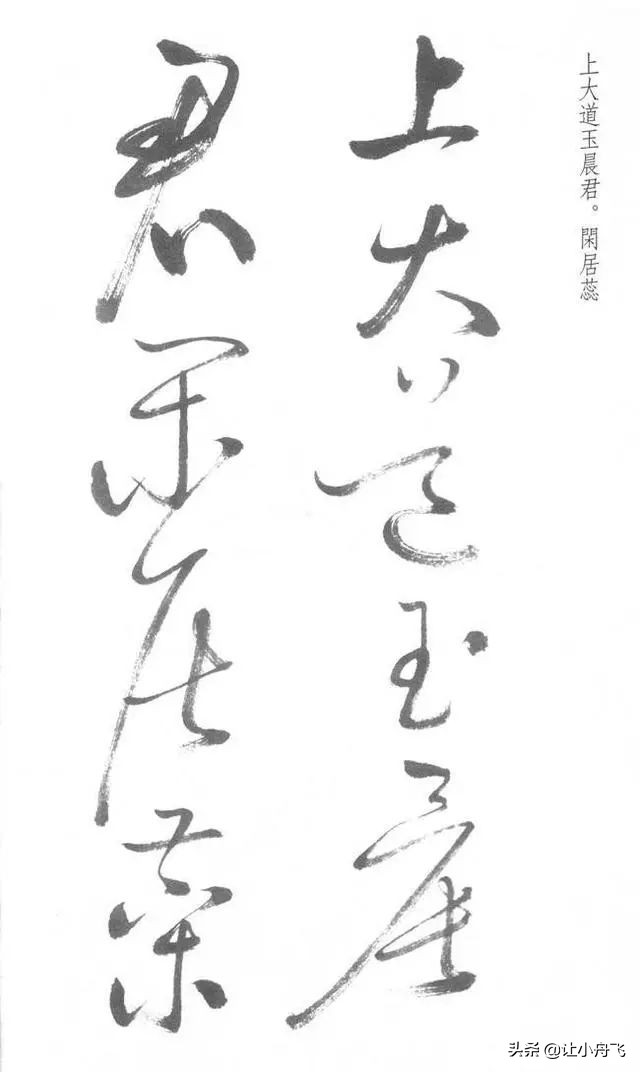 上大道玉晨君。閑居蕊
上大道玉晨
君閑居蕊
头条 @让小舟飞